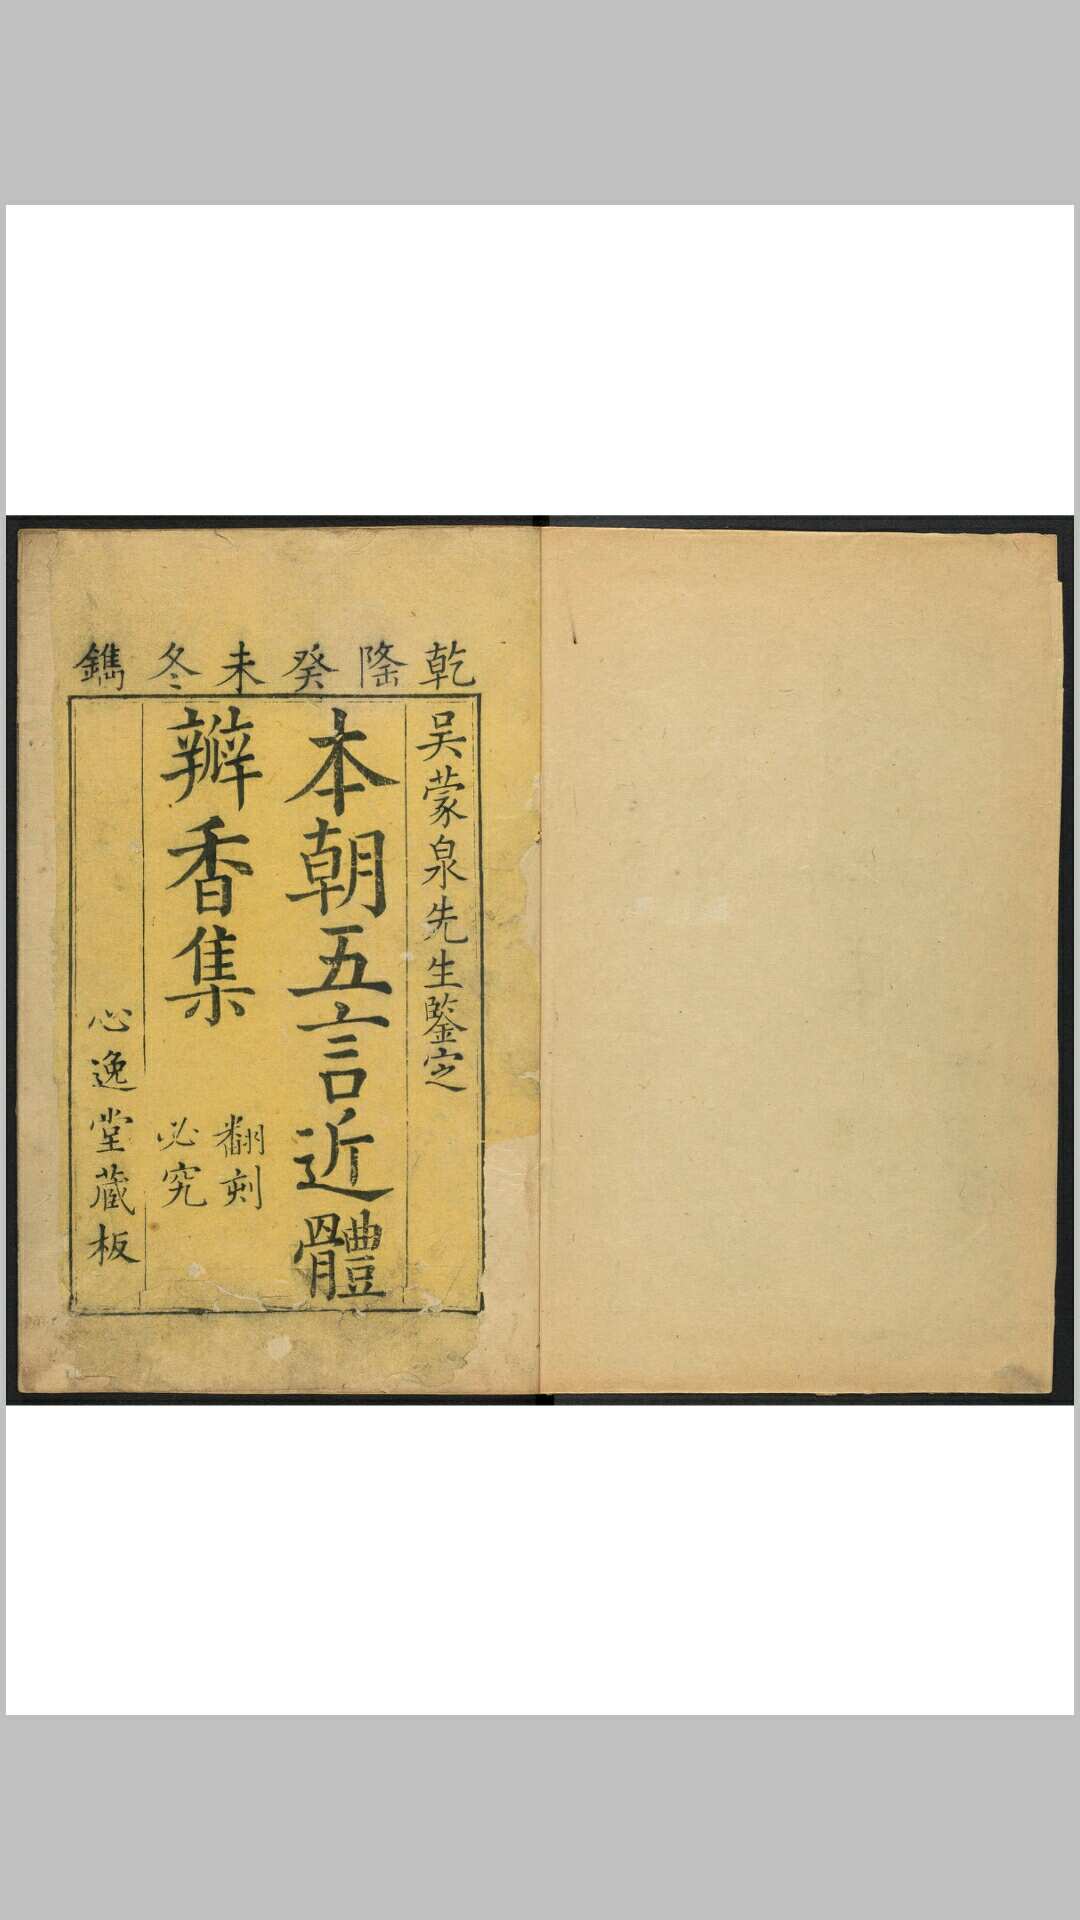 乾隆癸未冬鐫
吴蒙泉先生鑒定
本朝五言近體
瓣香集
翻刻
必究
心逸堂藏板